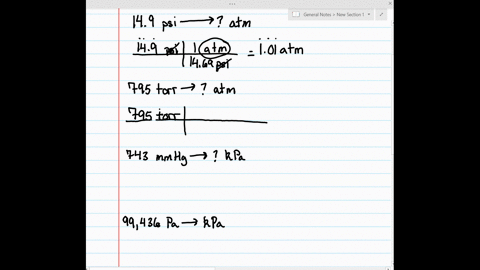 General Notes > New Section 1
14.9 psi → ? atm
14.9 psi | 1 atm = 1.01 atm
14.69 psi
795 torr → ? atm
795 torr
743 mmHg → ? kPa
99,436 Pa → kPa